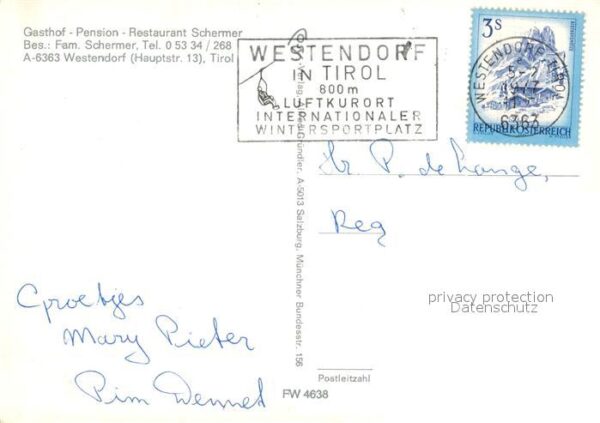 Gasthof - Pension - Restaurant Schermer
Bes.: Fam. Schermer, Tel. 0 53 34 / 268
A-6363 Westendorf (Hauptstr. 13), Tirol
WESTENDORF
IN TIROL
800 m
LUFTKURORT
INTERNATIONALER
WINTERSPORTPLATZ
3S
WESTENDORF
6363
REPUBLIK ÖSTERREICH
Gründler, A-5013 Salzburg, Münchner Bundesstr. 156
P. de Lange,
privacy protection
Datenschutz
Groetjes
Mary Pieter
Pim
Postleitzahl
FW 4638